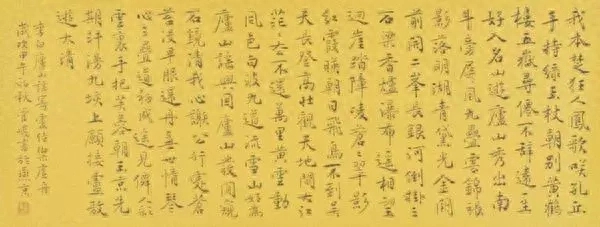 我本楚狂人鳳歌咲孔丘
手持綠玉杖朝別黃鶴
樓五嶽尋僊不辭遠一生
好入名山遊廬山秀出南
斗傍屏風九疊雲錦張
影落明湖青黛光金闕
前開二峯長銀河倒挂三
石梁香爐瀑布遥相望
迴崖沓障凌蒼蒼翠影
紅霞暎朝日飛鳥不到吳
天長登高壯觀天地間大江
茫茫去不還萬里黃雲動
風色白波九道流雪山好為
廬山謠興因廬山發閑窺
石鏡清我心謝公行處蒼
苔沒早服還丹無世情琴
心三疊道初成遥見僊人綵
雲裏手把芙蓉朝玉京先
期汗漫九垓上願接盧敖
遊太清
李白廬山謠寄盧侍御虛舟
歲次甲午初秋書於京